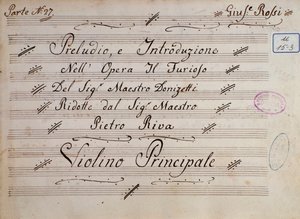 Parte N° 27
Gius.e Rossi
Preludio, e Introduzione
Nell' Opera Il Furioso
Del Sig.r Maestro Donizetti
Ridotto dal Sig.r Maestro
Pietro Riva
Violino Principale
M
15-3